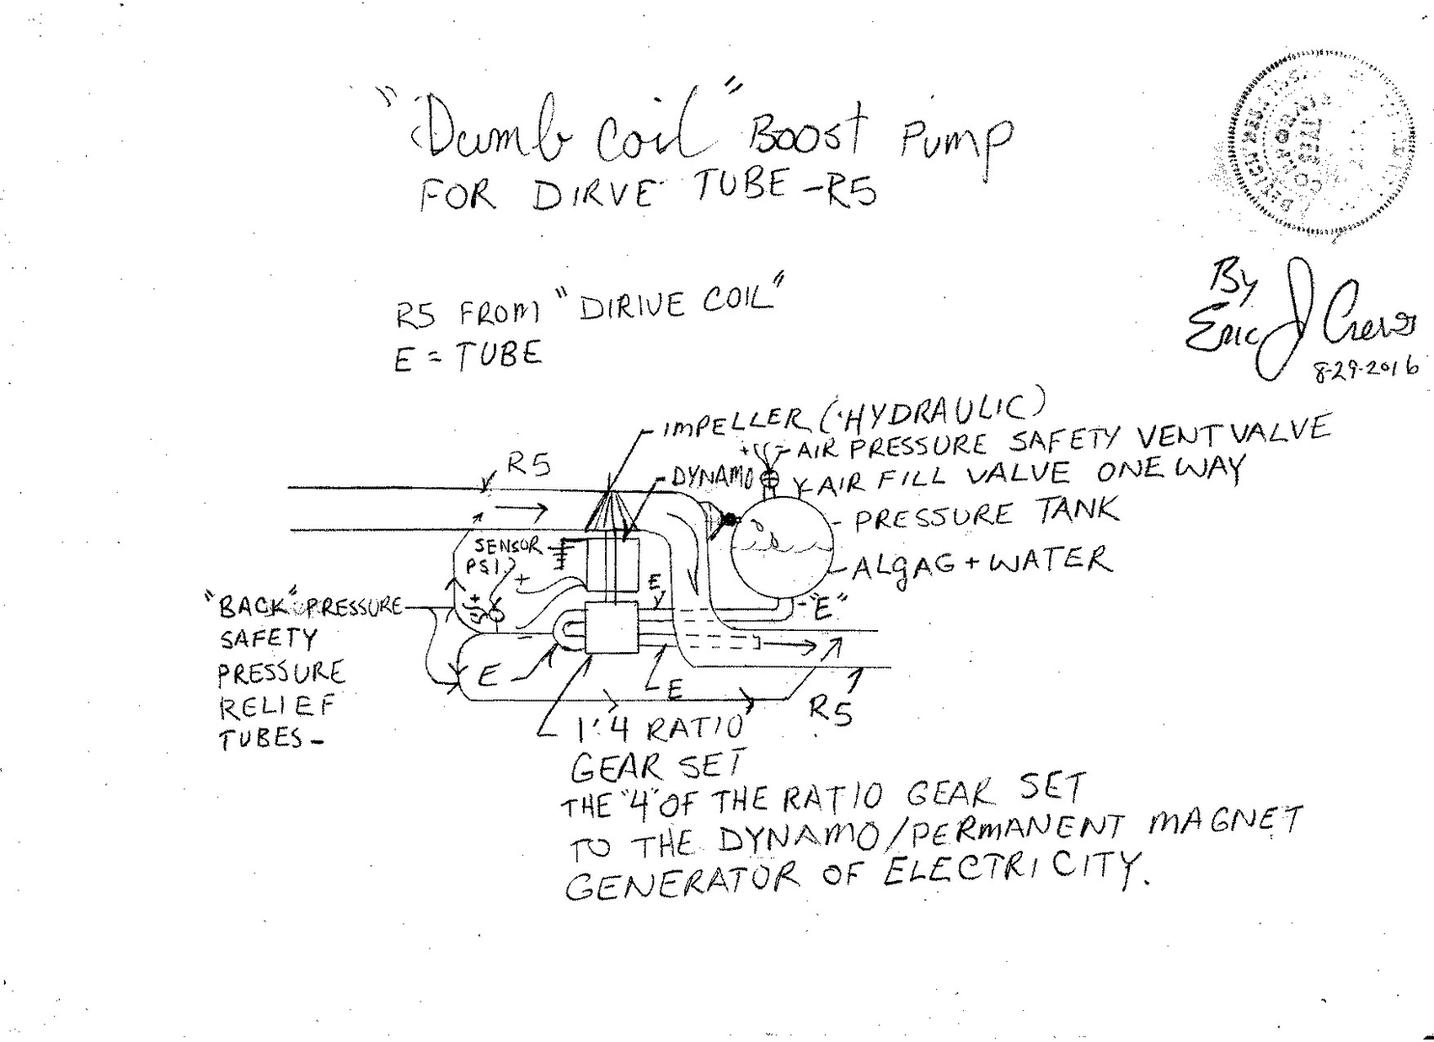 "Dumb Coil" BOOST PUMP
FOR DIRVE TUBE -R5
CORPORATE
SEAL
By
Eric J Crews
8-29-2016
R5 FROM "DIRIVE COIL"
E = TUBE
IMPELLER (HYDRAULIC)
AIR PRESSURE SAFETY VENT VALVE
AIR FILL VALVE ONE WAY
PRESSURE TANK
ALGAG + WATER
R5
DYNAMO
SENSOR
PSI
+
+
-
+
-
E
"E"
"BACK" PRESSURE
SAFETY
PRESSURE
RELIEF
TUBES -
E
E
R5
1:4 RATIO
GEAR SET
THE "4" OF THE RATIO GEAR SET
TO THE DYNAMO/PERMANENT MAGNET
GENERATOR OF ELECTRICITY.